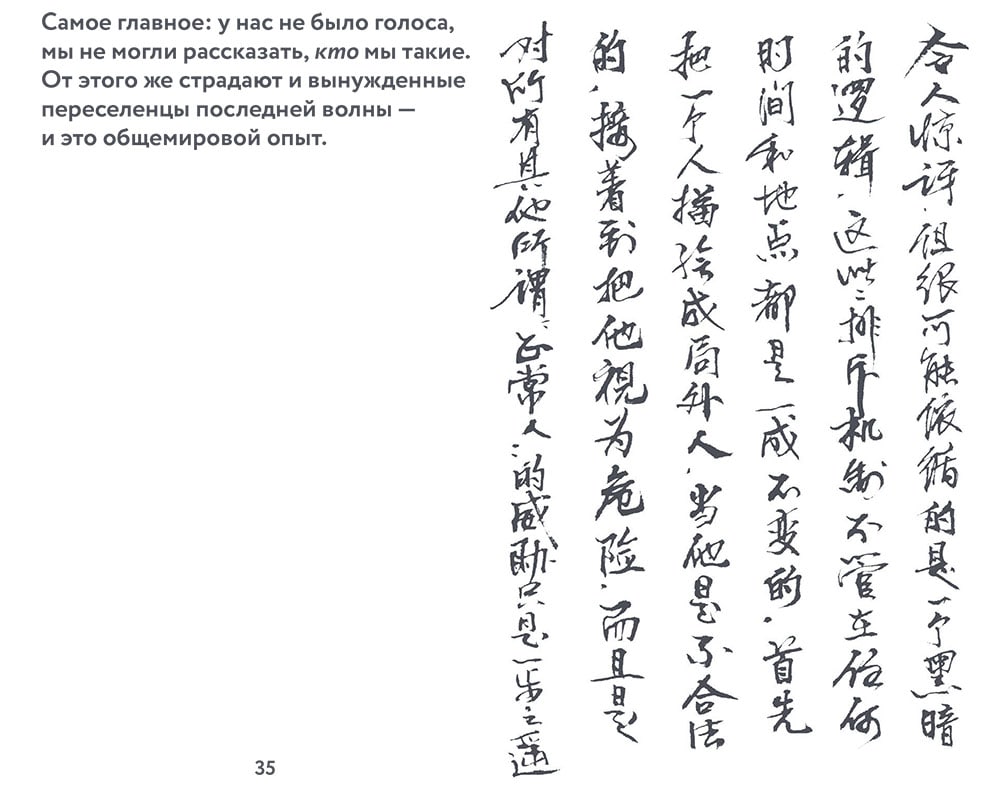 Самое главное: у нас не было голоса,
мы не могли рассказать, кто мы такие.
От этого же страдают и вынужденные
переселенцы последней волны —
и это общемировой опыт.
令人惊讶，但很可能依循的是一个黑暗
的逻辑，这些排斥机制不管在任何
时间和地点都是一成不变的，首先
把一个人描绘成局外人，当他是不合法
的，接着到把他視为危险，而且是
对所有其他所谓“正常人”的威胁只是一步之遥
35